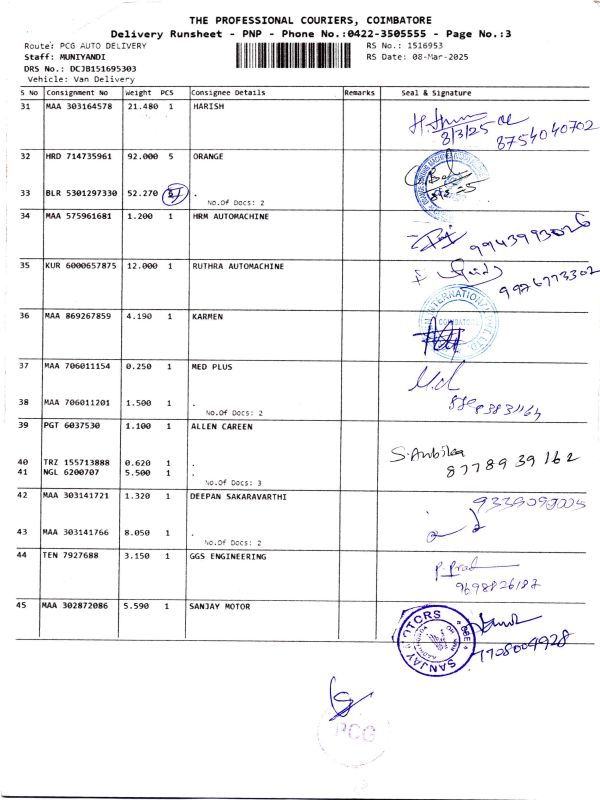 THE PROFESSIONAL COURIERS, COIMBATORE
Delivery Runsheet - PNP - Phone No.:0422-3505555 - Page No.:3
Route: PCG AUTO DELIVERY RS No.: 1516953
Staff: MUNIYANDI RS Date: 08-Mar-2025
DRS No.: DCJB151695303
Vehicle: Van Delivery
S No Consignment No Weight PCS Consignee Details Remarks Seal & Signature
31 MAA 303164578 21.480 1 HARISH
8/3/25
8754040702
32 HRD 714735961 92.000 5 ORANGE
33 BLR 5301297330 52.270 .
No.Of Docs: 2
34 MAA 575961681 1.200 1 HRM AUTOMACHINE
9943993026
35 KUR 6000657875 12.000 1 RUTHRA AUTOMACHINE
9976773302
36 MAA 869267859 4.190 1 KARMEN
INTERNATIONAL
37 MAA 706011154 0.250 1 MED PLUS
38 MAA 706011201 1.500 1 .
No.Of Docs: 2
39 PGT 6037530 1.100 1 ALLEN CAREEN
S. Anbilaa
8778939162
40 TRZ 155713888 0.620 1 .
41 NGL 6200707 5.500 1 .
No.Of Docs: 3
42 MAA 303141721 1.320 1 DEEPAN SAKARAVARTHI
43 MAA 303141766 8.050 1 .
No.Of Docs: 2
44 TEN 7927688 3.150 1 GGS ENGINEERING
9698826182
45 MAA 302872086 5.590 1 SANJAY MOTOR
SANJAY MOTORS
7708009928
PCG